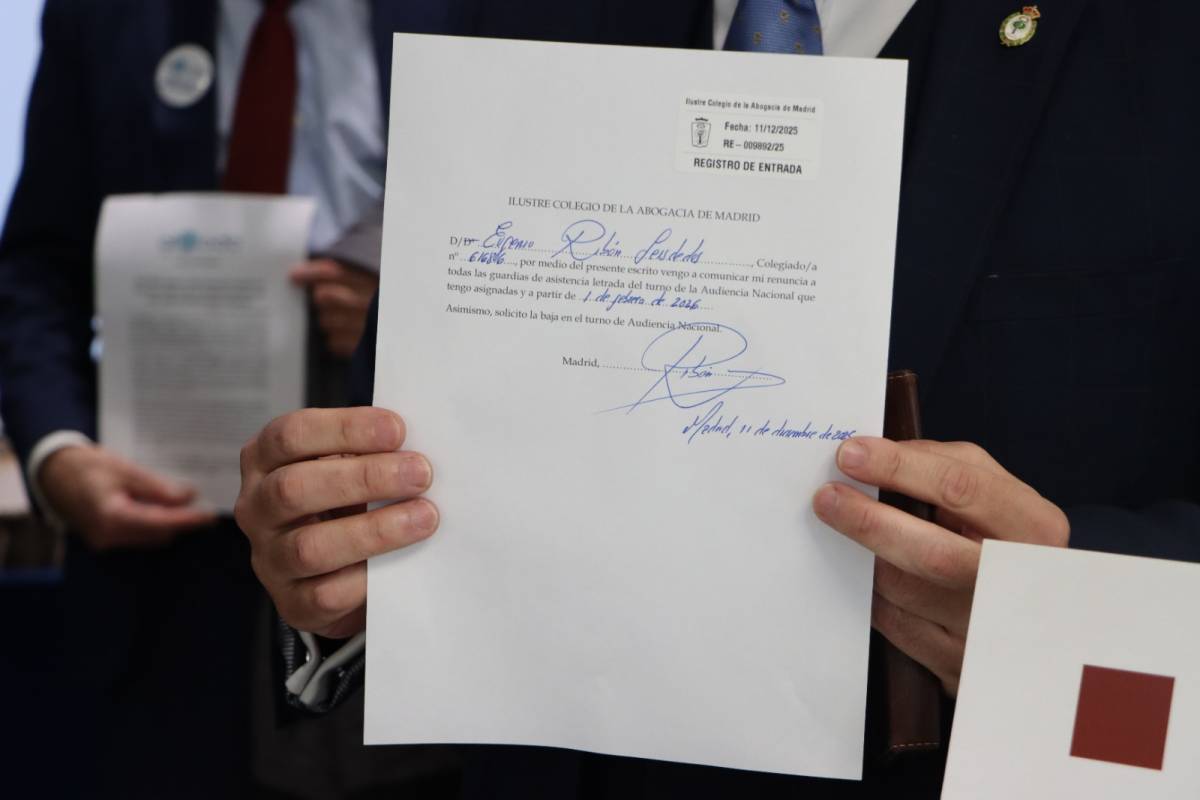 Ilustre Colegio de la Abogacía de Madrid
Fecha: 11/12/2025
RE – 009892/25
REGISTRO DE ENTRADA
ILUSTRE COLEGIO DE LA ABOGACIA DE MADRID
D/Dª Eugenio Ribón Seisdedos, Colegiado/a
nº, por medio del presente escrito vengo a comunicar mi renuncia a
todas las guardias de asistencia letrada del turno de la Audiencia Nacional que
tengo asignadas y a partir de 1 de febrero de 2026
Asimismo, solicito la baja en el turno de Audiencia Nacional.
Madrid, Ribón
Madrid, 11 de diciembre de 2025